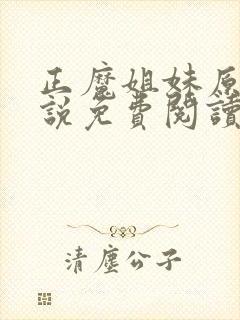 正魔姐妹原
說免費閱讀
清塵公子